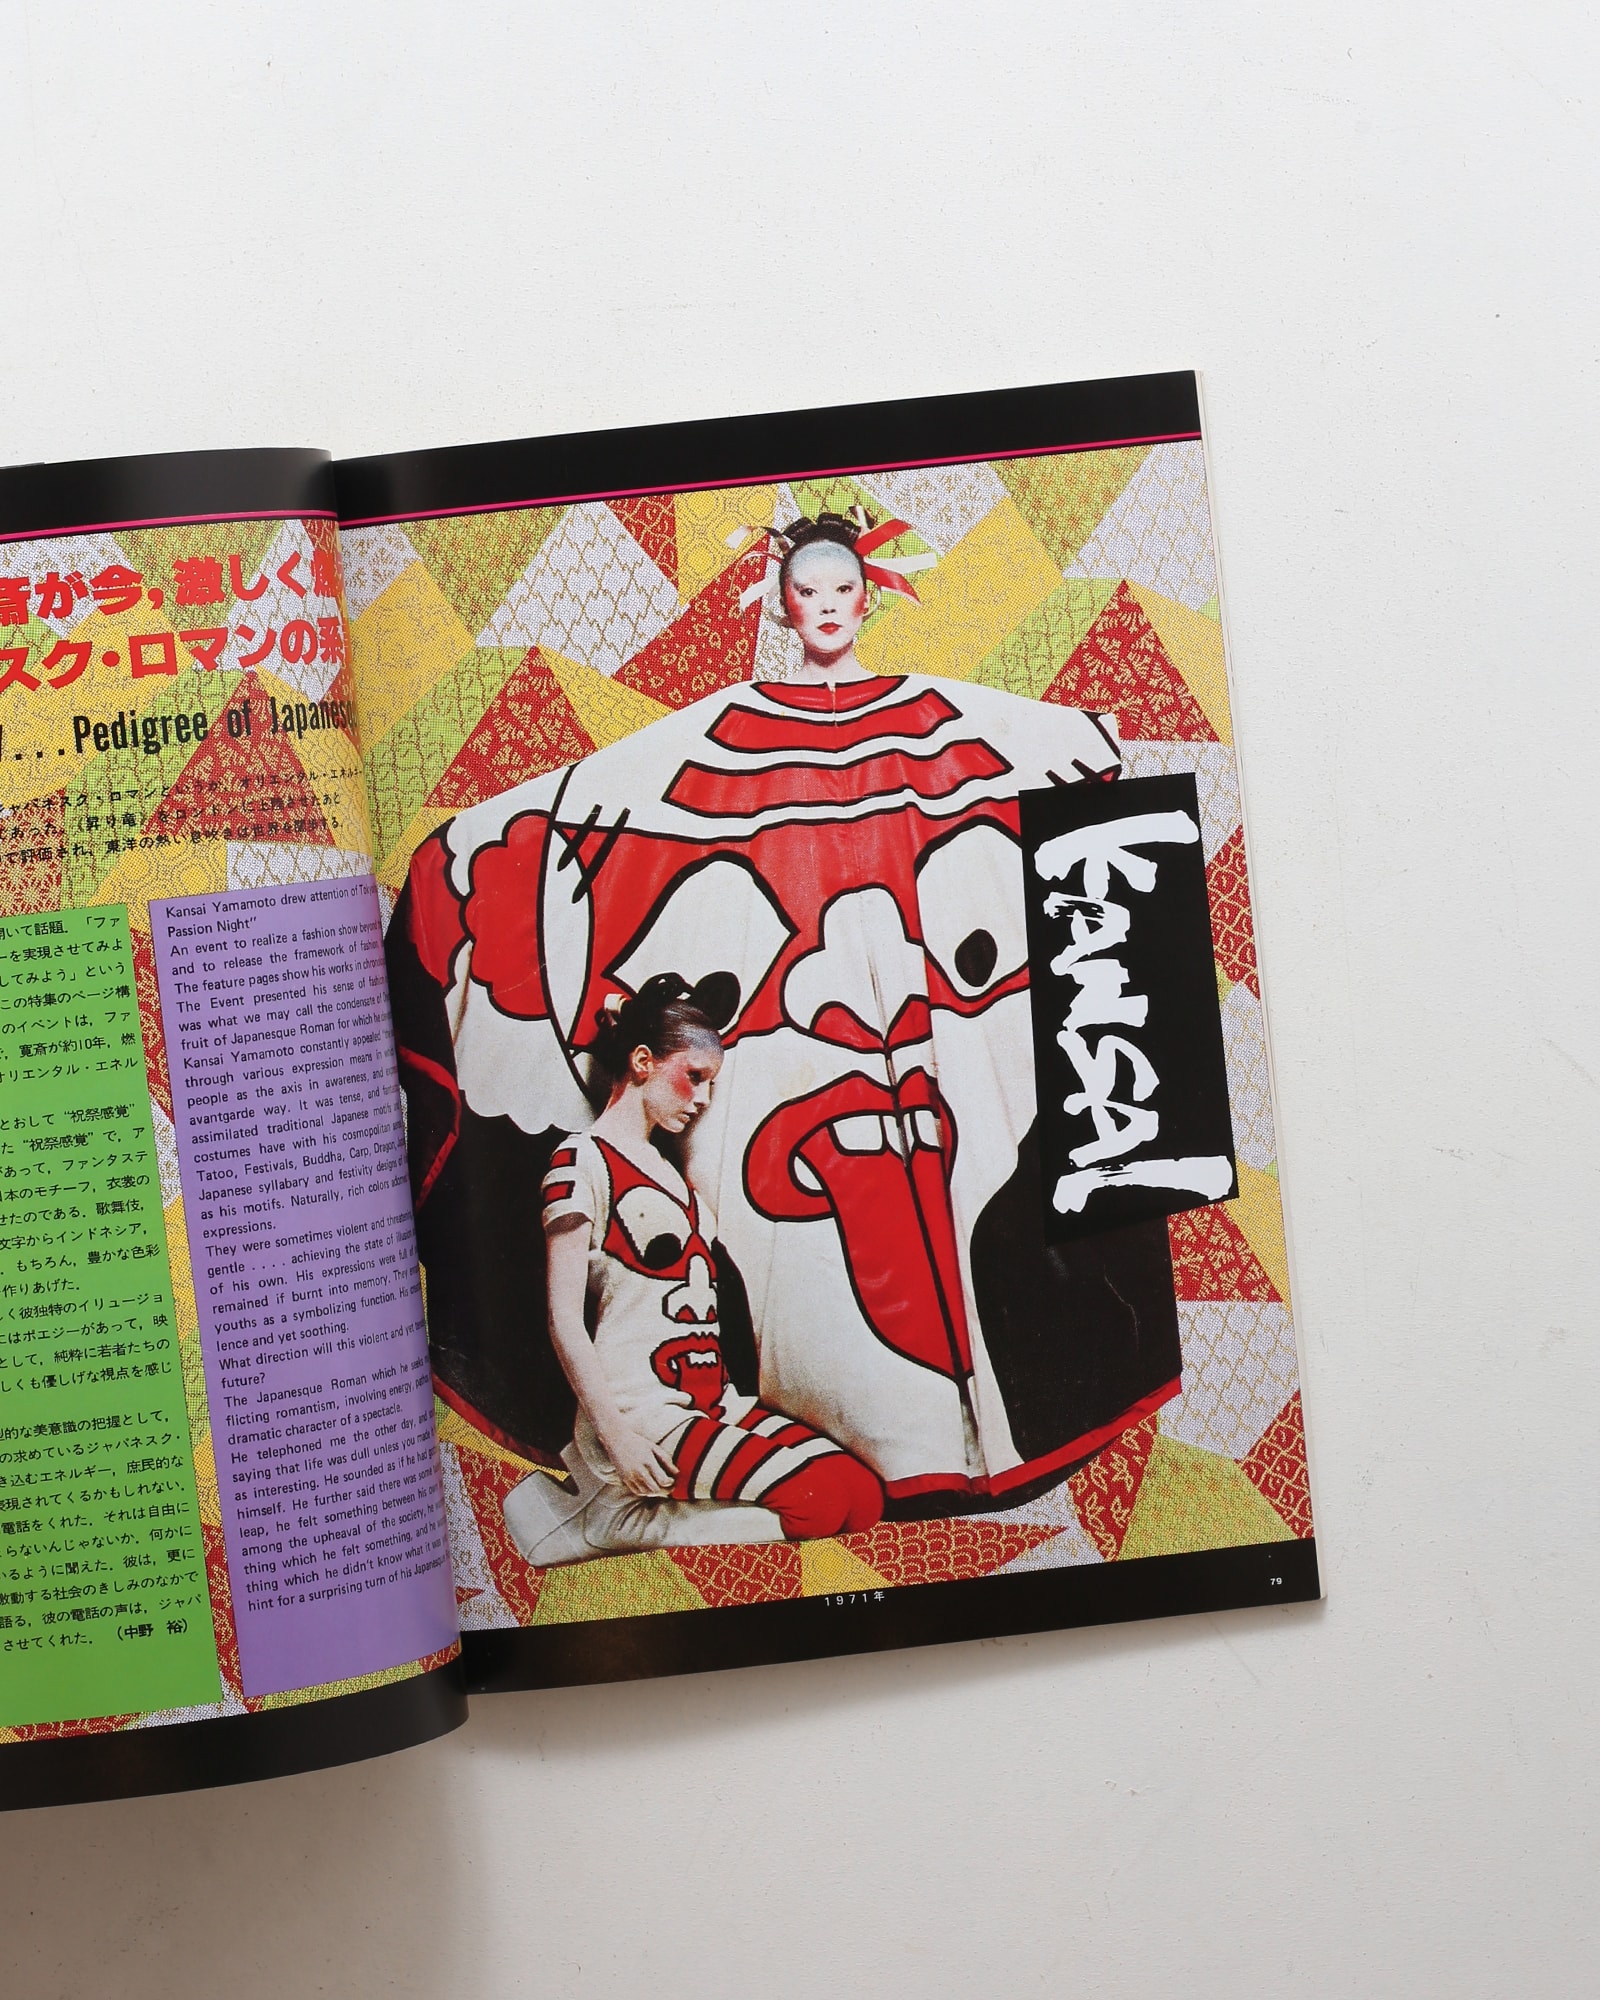 斎が今，激しく
スク・ロマンの系
...Pedigree of Japanesq
ジャパネスク・ロマンというか，オリエンタル・エネルギー
てあった．〈昇り竜〉をロンドンに上陸させたあと
で評価され，東洋の熱い息吹きは世界を闊歩する．
開いて話題．「ファ
ーを実現させてみよ
してみよう」という
この特集のページ構
のイベントは，ファ
で，寛斎が約10年，燃
オリエンタル・エネル
とおして“祝祭感覚”
た“祝祭感覚”で，ア
があって，ファンタステ
日本のモチーフ，衣裳の
せたのである．歌舞伎，
文字からインドネシア，
．もちろん，豊かな色彩
作りあげた．
しく彼独特のイリュージョ
にはポエジーがあって，映
として，純粋に若者たちの
しくも優しげな視点を感じ
的な美意識の把握として，
の求めているジャパネスク・
き込むエネルギー，庶民的な
表現されてくるかもしれない．
電話をくれた．それは自由に
らないんじゃないか．何かに
いるように聞えた．彼は，更に
激動する社会のきしみのなかで
語る，彼の電話の声は，ジャパ
させてくれた． （中野 裕）
Kansai Yamamoto drew attention of Tokyo
Passion Night"
An event to realize a fashion show beyond
and to release the framework of fashion,
The feature pages show his works in chrono
The Event presented his sense of
was what we may call the condensate of
fruit of Japanesque Roman for which he
Kansai Yamamoto constantly appealed
through various expression means in
people as the axis in awareness, and
avantgarde way. It was tense, and
assimilated traditional Japanese motifs
costumes have with his cosmopolitan
Tatoo, Festivals, Buddha, Carp, Dragon,
Japanese syllabary and festivity designs
as his motifs. Naturally, rich colors adorned
expressions.
They were sometimes violent and threatening,
gentle .... achieving the state of illusion
of his own. His expressions were full of
remained if burnt into memory. They
youths as a symbolizing function. His
lence and yet soothing.
What direction will this violent and yet
future?
The Japanesque Roman which he seeks
flicting romantism, involving energy,
dramatic character of a spectacle.
He telephoned me the other day, and
saying that life was dull unless you made
as interesting. He sounded as if he had
himself. He further said there was some
leap, he felt something between his own
among the upheaval of the society, he
thing which he felt something, and he
thing which he didn't know what it was
hint for a surprising turn of his Japanesque
KANSAI
1971年
79